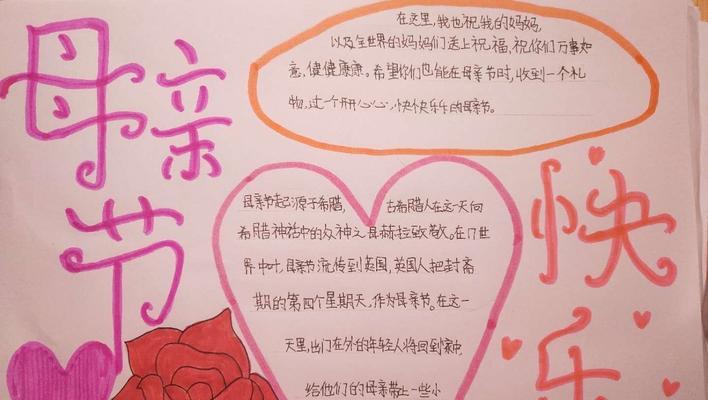 母亲节
在这里,我也祝我的妈妈,
以及全世界的妈妈们送上祝福,祝你们万事如
意,健健康康。希望你们也能在母亲节时,收到一个礼
物,过一个开开心心,快快乐乐的母亲节。
母亲节起源于希腊, 古希腊人在这一天向
希腊神话中的众神之母赫拉致敬。在17世
界中叶,母亲节流传到英国,英国人把封斋
期的第四个星期天,作为母亲节。在这一
天里,出门在外的年轻人将回到家中,
给他们的母亲带上一些小
快乐